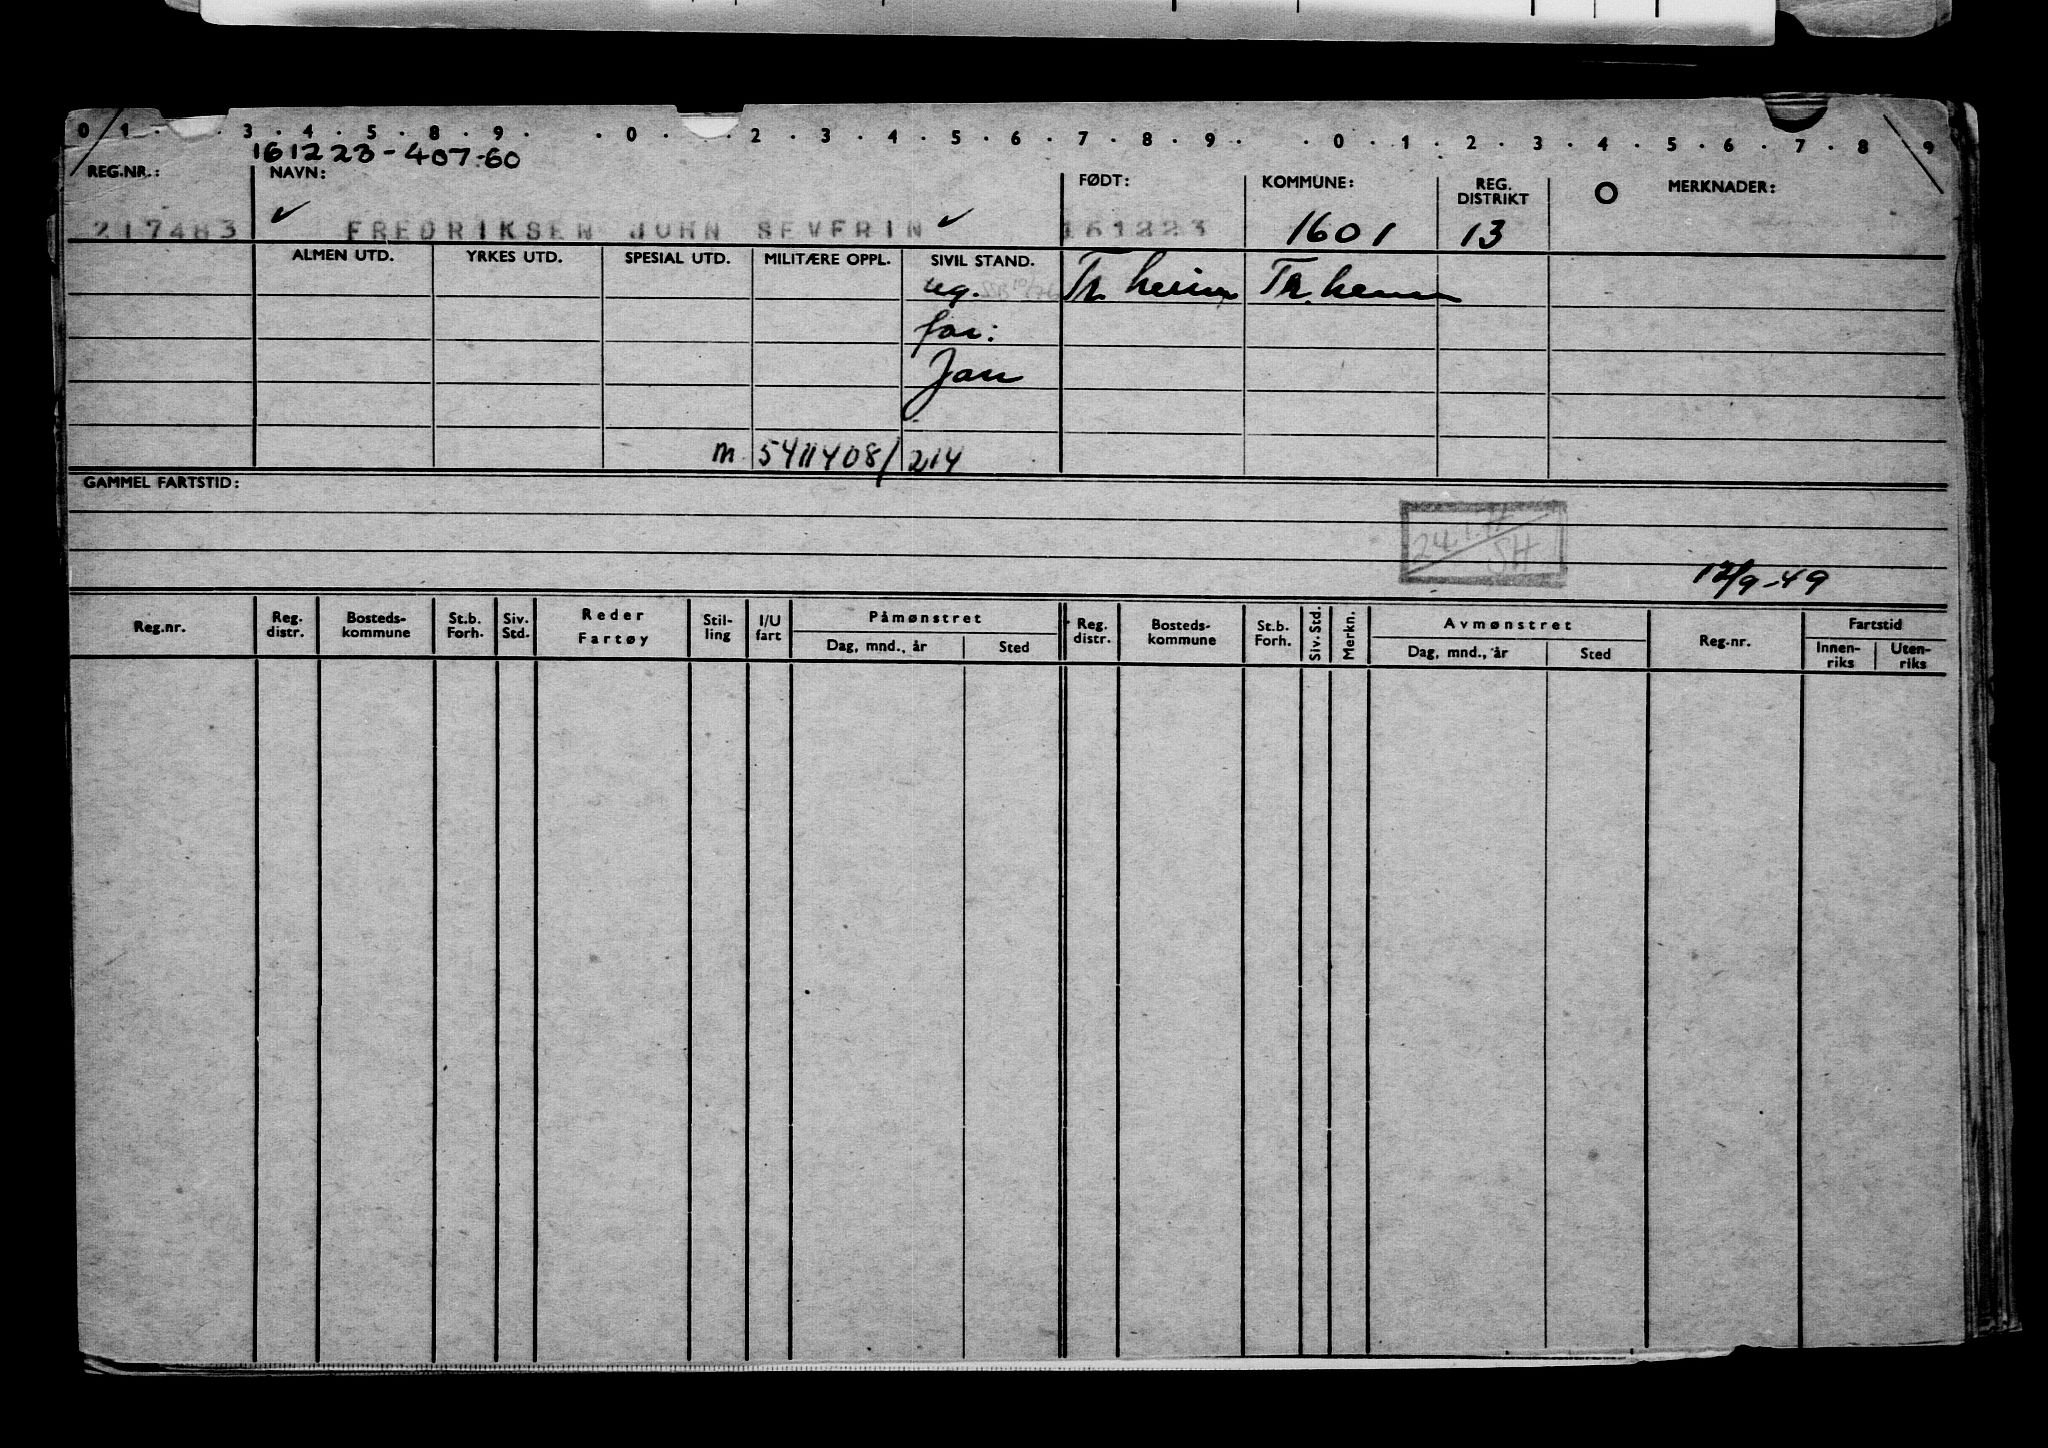 0 1 . . 3 . 4 . 5 . 8 . 9 . . 0 . . 2 . 3 . 4 . 5 . 6 . 7 . 8 . 9 . . 0 . 1 . 2 . 3 . 4 . 5 . 6 . 7 . 8 . 9
161223-407-60
REG.NR.: NAVN: FØDT: KOMMUNE: REG. DISTRIKT O MERKNADER:
217483 ✓ FREDRIKSEN JOHN SEVERIN ✓ 161223 1601 13
ALMEN UTD. YRKES UTD. SPESIAL UTD. MILITÆRE OPPL. SIVIL STAND.
ug. Tr.heim Tr.heim
far:
Jan
m 5411408/214
GAMMEL FARTSTID:
SH
12/9-49
Reg.nr. Reg. distr. Bosteds- kommune St.b. Forh. Siv. Std. Reder Fartøy Stil- ling I/U fart Påmønstret Dag, mnd., år Sted Reg. distr. Bosteds- kommune St.b. Forh. Siv. Std. Merkn. Avmønstret Dag, mnd., år Sted Reg.nr. Fartstid Innen- riks Uten- riks